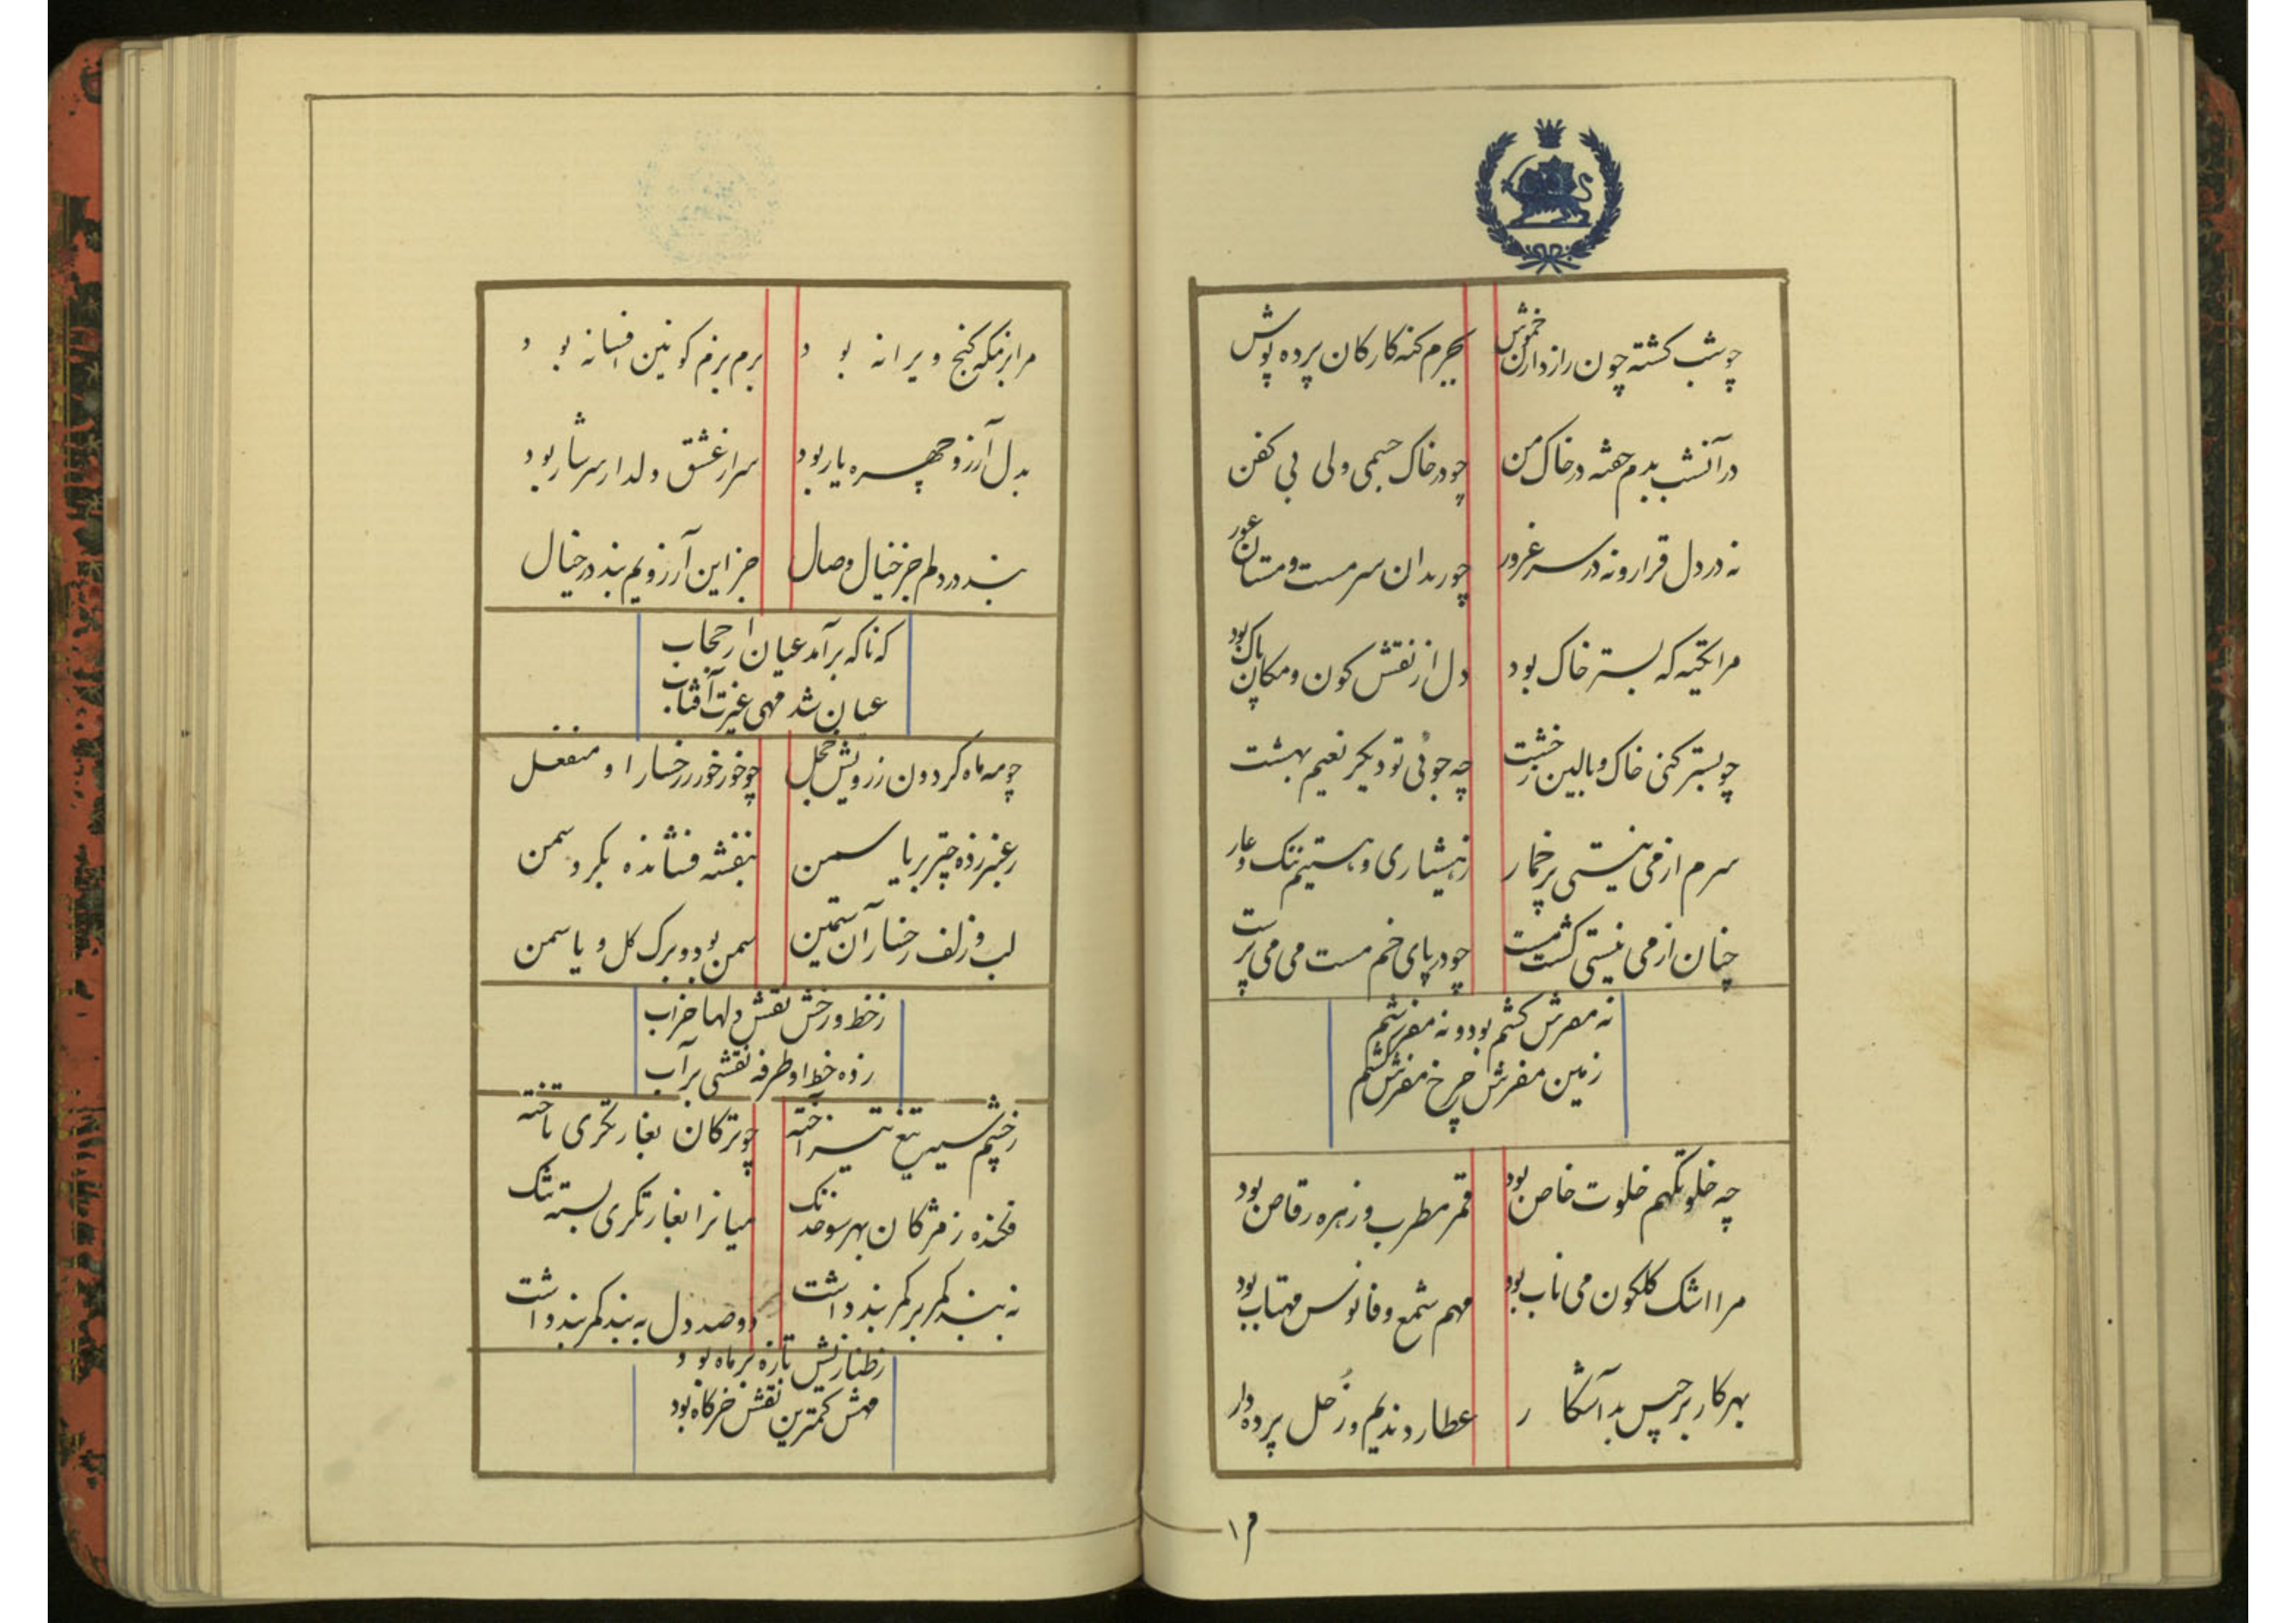 چو شب کشته چون رازداران خموش
بجرم کنه کارکان پرده پوش
در آنشب بدم خفته در خاک من
چو در خاک جسمی ولی بی کفن
نه در دل قرار و نه در سر غرور
چو رندان سرمست و مستان عور
مرا تکیه که بستر خاک بود
دل از نقش کون و مکان پاک بود
چو بستر کنی خاک و بالین ز خشت
چه جوئی تو دیکر نعیم بهشت
سرم از می نیستی پر خمار
ز هشیاری و هستیم ننک و عار
چنان از می نیستی کشت مست
چو در پای خم مست می می پرست
نه مفرش کشم بود و نه مفرشم
زمین مفرش چرخ مفرش کشم
چه خلوتکهم خلوت خاص بود
قمر مطرب و زهره رقاص بود
مرا اشک کلکون می ناب بود
مهم شمع و فانوس مهتاب بود
بهر کار برجیس بد آشکار
عطارد ندیم و زحل پرده دار
۱۲
مرا بزمکه کنج ویرانه بود
برم بزم کونین افسانه بود
بدل آرزو چهره یار بود
سر از عشق دلدار سرشار بود
نبد در دلم جز خیال وصال
جز این آرزویم نبد در خیال
که ناکه برآمد عیان از حجاب
عیان شد مهی غیرت آفتاب
چو مه ماه کردون ز رویش خجل
چو خور خور ز رخسار او منفعل
ز عنبر زده چتر بر یاسمن
بنفشه فشانده بکرد سمن
لب و زلف رخسار آن سیمتن
سمن بود و برک کل و یاسمن
ز خط و رخش نقش دلها خراب
زده خط او طرفه نقشی بر آب
ز چشم سیه تیغ تیز آخته
چو ترکان بغارتکری تاخته
فکنده ز مژکان بهر سو خدنک
میانرا بغارتکری بسته تنک
نه بند کمر بر کمر بند داشت
دو صد دل به بند کمربند داشت
تازه بر ماه بود
مهش کمترین نقش خرکاه بود